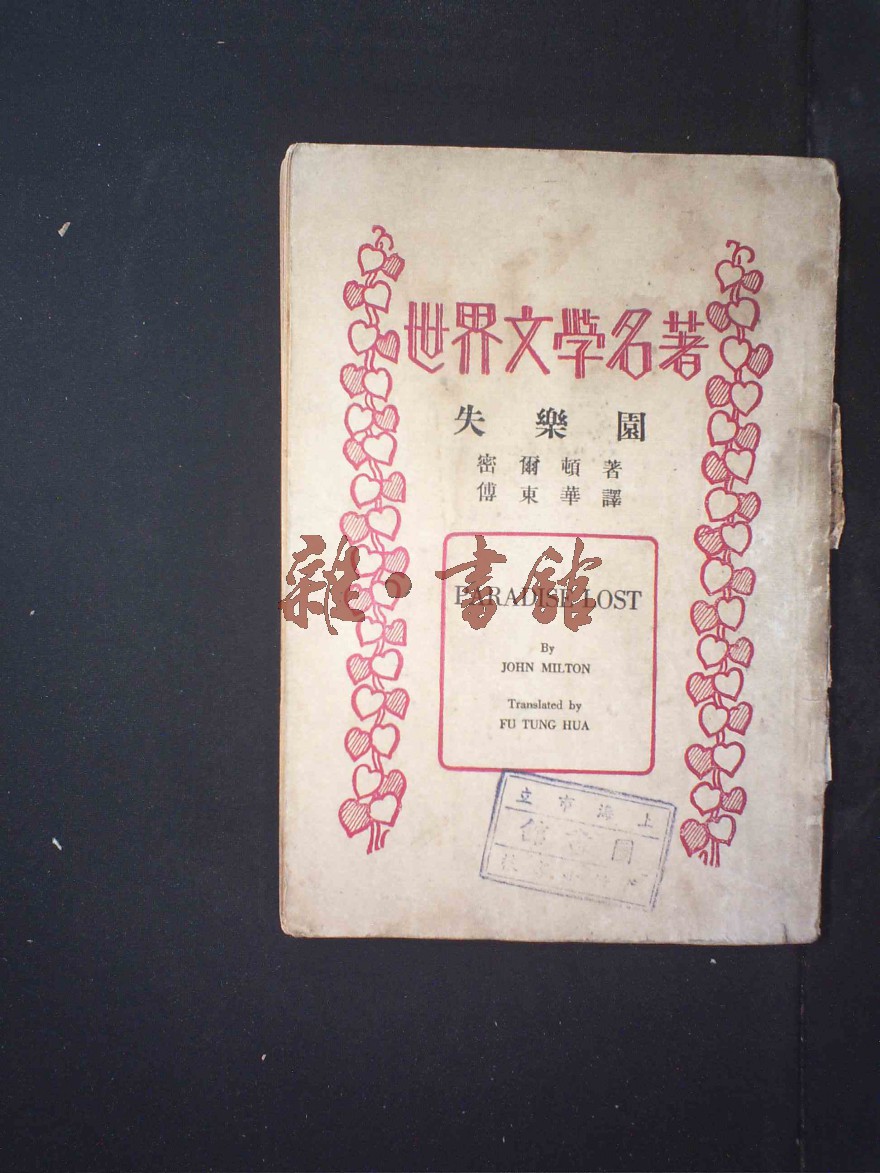 世界文學名著
失樂園
密爾頓著
傅東華譯
雜·書館
PARADISE LOST
By
JOHN MILTON
Translated by
FU TUNG HUA
上海市立
圖